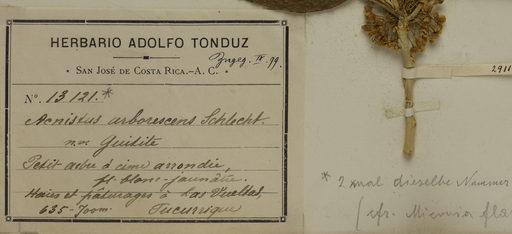 HERBARIO ADOLFO TONDUZ
· SAN JOSÉ DE COSTA RICA.–A. C. ·
IV. 99.
N°. 13 121.*
Acnistus arborescens Schlecht.
n.v. Guitite
Petit arbre à cime arrondie,
fl. blanc-jaunâtre.
Haies et pâturages à Las Vueltas,
635-700m. Tucurrique
2911
* 2 mal dieselbe Nummer
(cfr. Miconia fla